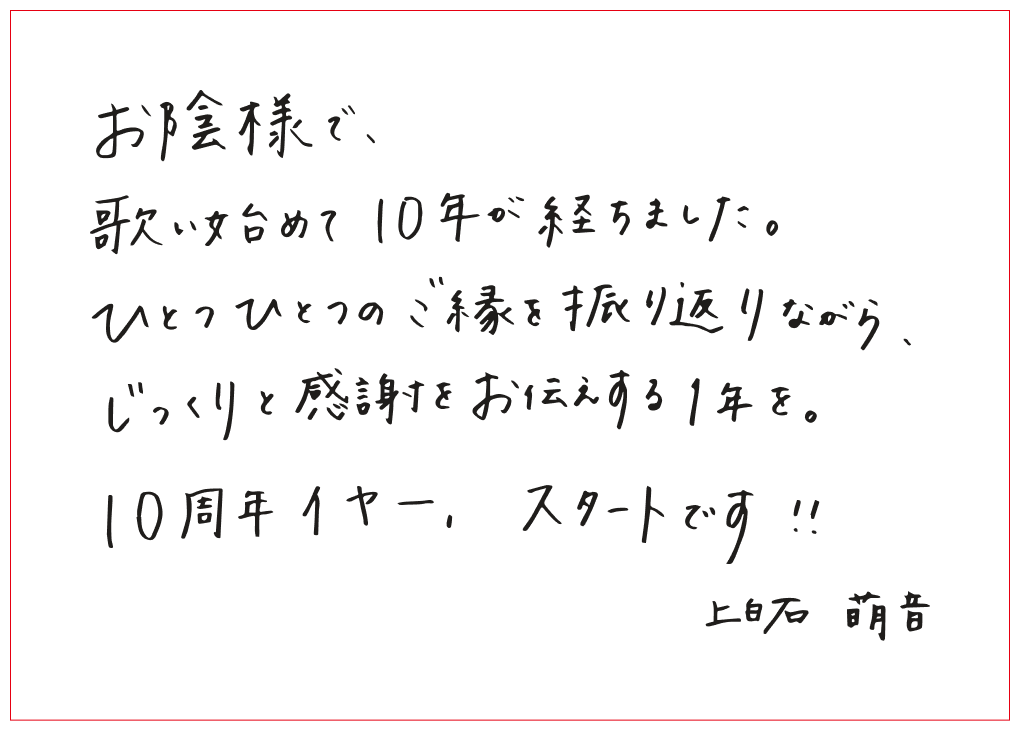 お陰様で、
歌い始めて10年が経ちました。
ひとつひとつのご縁を振り返りながら、
じっくりと感謝をお伝えする1年を。
10周年イヤー, スタートです!!
上白石 萌音